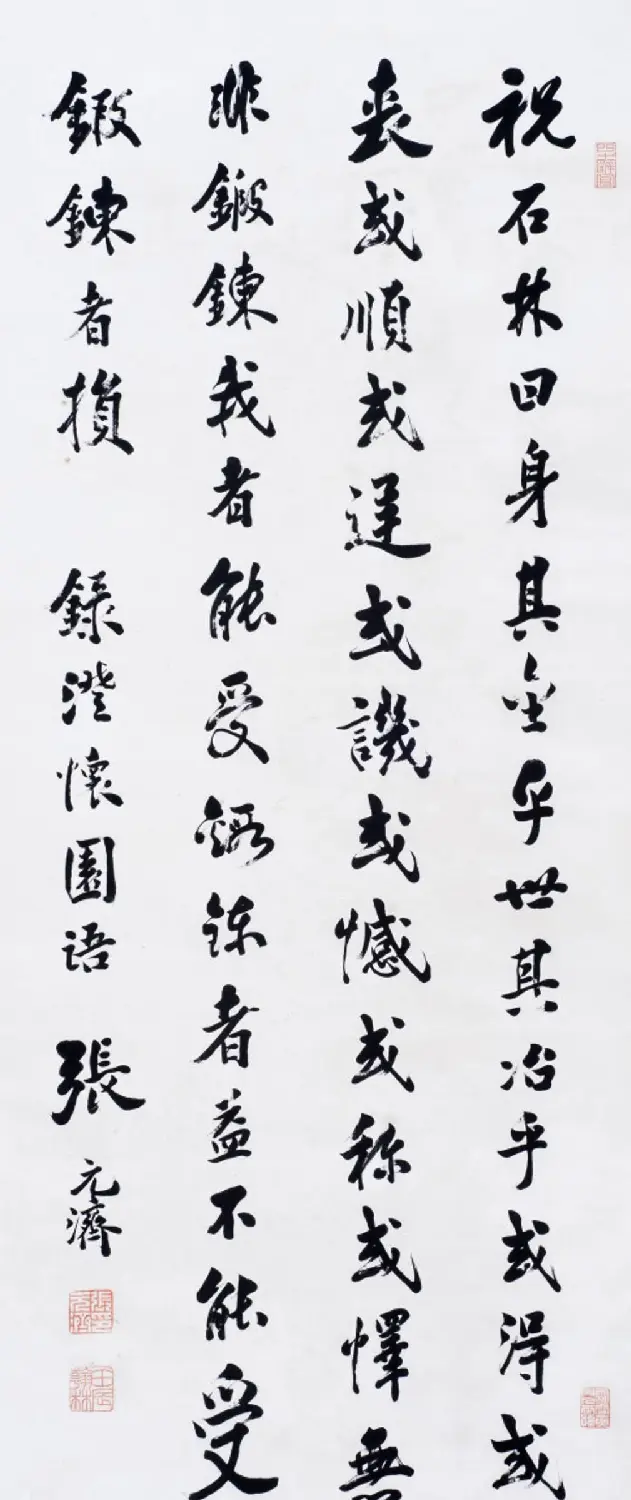 祝石林曰身其金乎世其冶乎或得或
喪或順或逆或譏或憾或称或懌無
非鍛鍊我者能受煅鍊者益不能受
鍛鍊者損 錄澄懷園语 張元濟